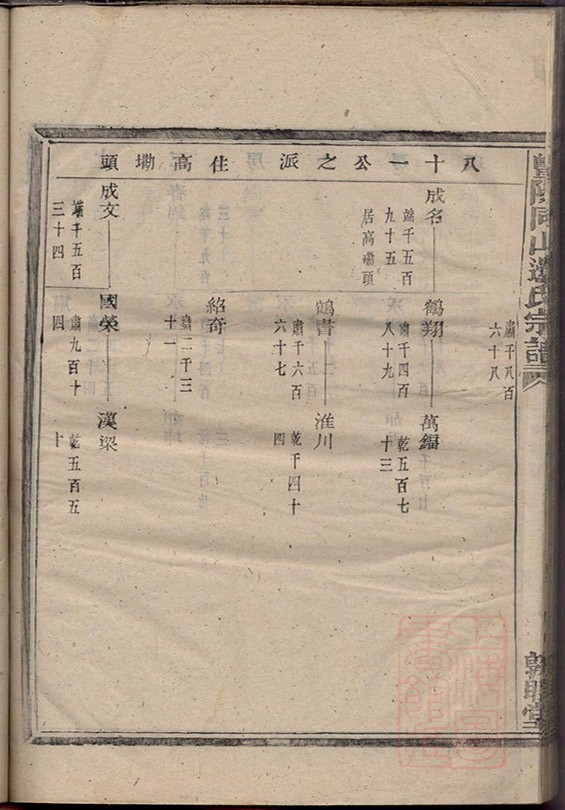 暨陽同山邊氏宗譜
八十一公之派住高坳頭
肅千八百
六十八
成名
端千五百
九十五
居高坳頭
鶴翔
肅千四百
八十九
萬鎰
乾五百七
十三
鶴書
肅千六百
六十七
淮川
乾千四十
四
紹奇
肅二千三
十一
成文
端千五百
三十四
國榮
肅九百十
四
漢梁
乾五百五
十
敦睦堂